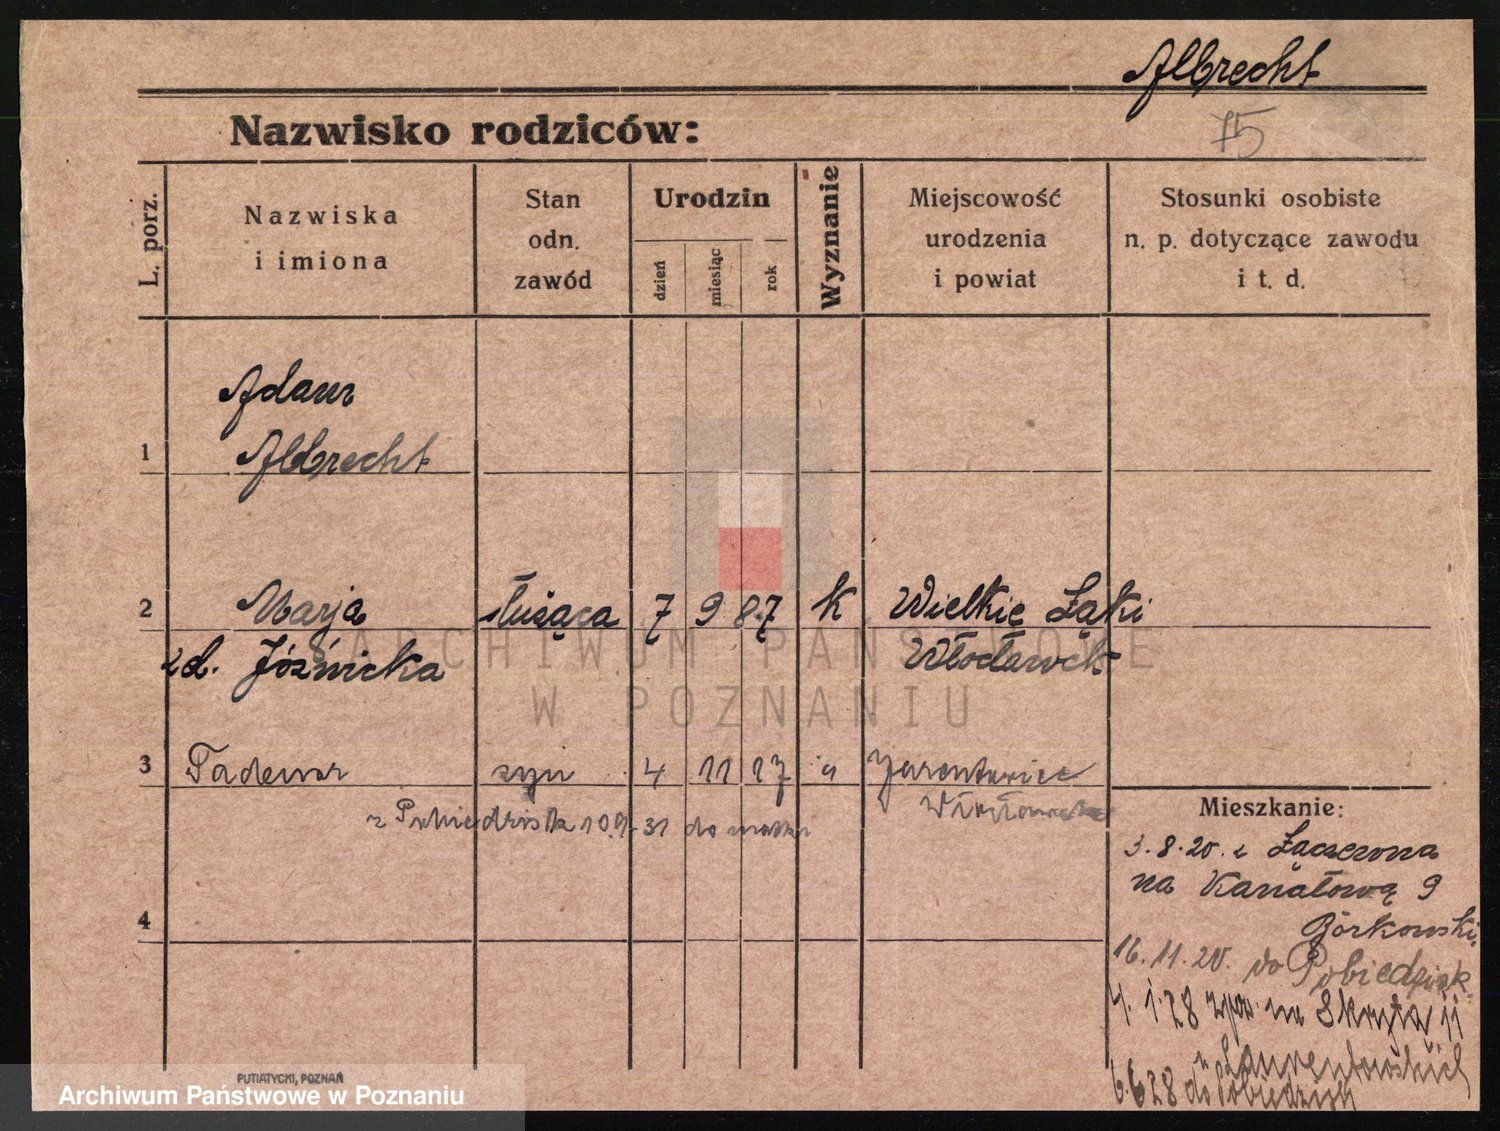 Albrecht
Nazwisko rodziców:
75
L. porz.
Nazwiska
i imiona
Stan
odn.
zawód
Urodzin
dzień
miesiąc
rok
Wyznanie
Miejscowość
urodzenia
i powiat
Stosunki osobiste
n. p. dotyczące zawodu
i t. d.
Adam
1 Albrecht
2 Marja służąca 7 9 87 K Wielkie Łąki
zd. Jóźwicka Włocławek
ARCHIWUM PAŃSTWOWE
W POZNANIU
3 Tadeusz syn 4 11 17 "
z Pobiedzisk 10.9.31 do matki Włocławek
Mieszkanie:
3.8.20. z
na Kanałową 9
Borkowski
4
16.11.20. do Pobiedzisk
4. 1.28 na Skrytą 11
6.6.28 do Pobiedzisk
PUTIATYCKI, POZNAŃ
Archiwum Państwowe w Poznaniu